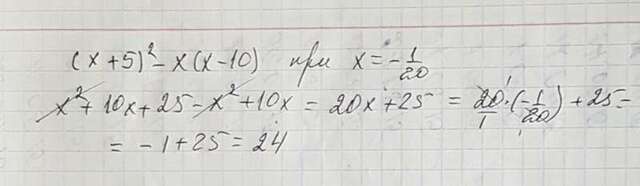 (x+5)² - x(x-10) при x = -1/20
x² + 10x + 25 - x² + 10x = 20x + 25 = 20/1 · (-1/20) + 25 =
= -1 + 25 = 24